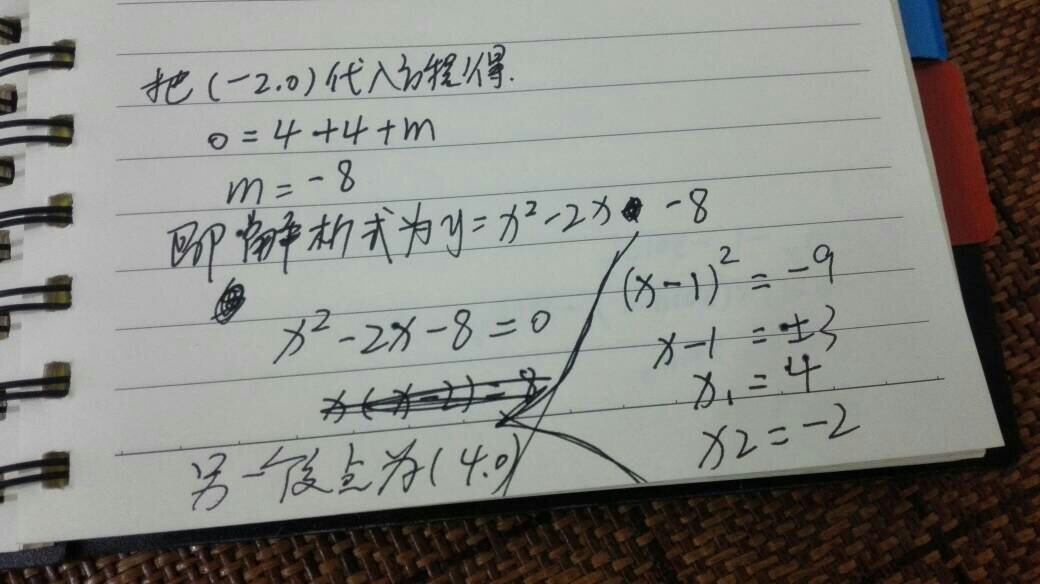 把(-2.0)代入方程得.
0=4+4+m
m=-8
即解析式为y=x²-2x -8
x²-2x-8=0
另一个交点为(4.0)
(x-1)²=-9
x-1=±3
x₁=4
x2=-2